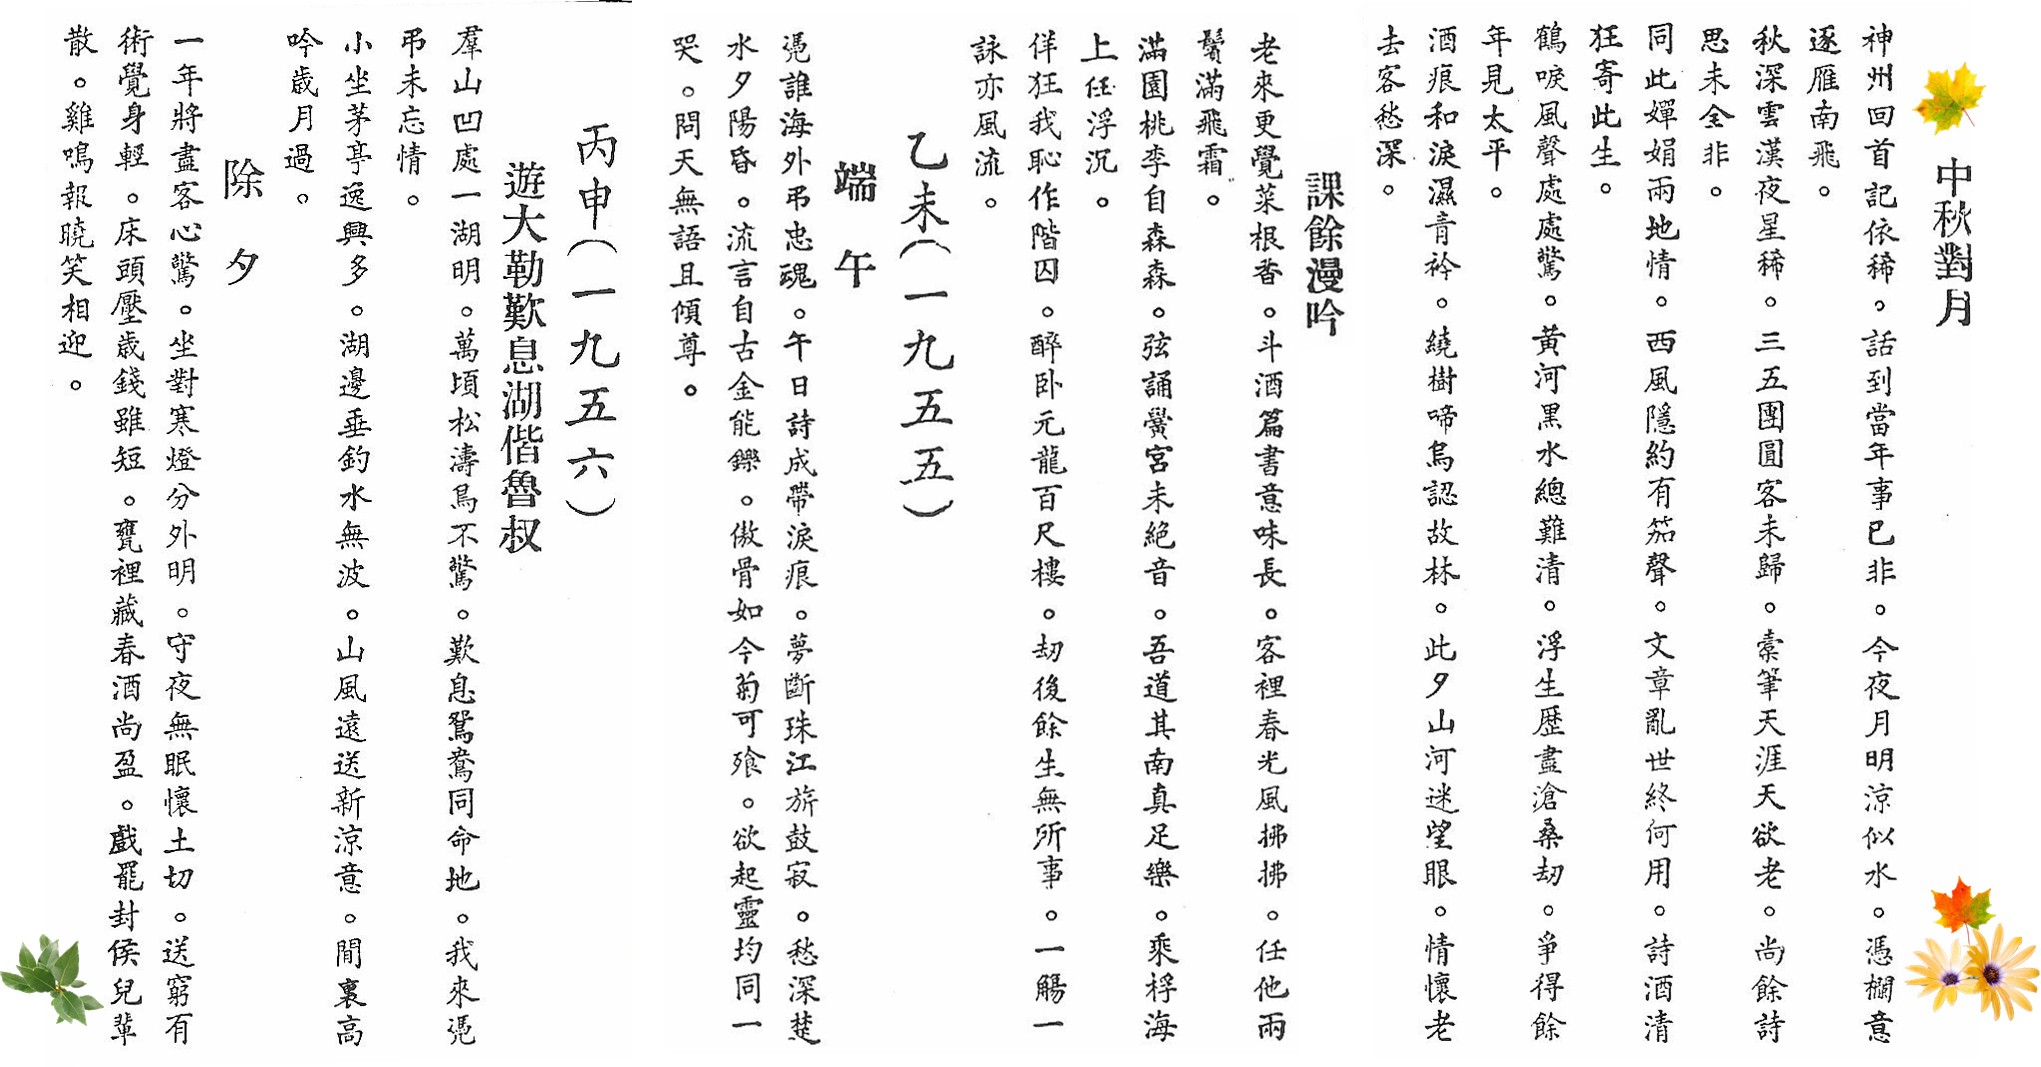 中秋對月
神州回首記依稀。話到當年事已非。今夜月明涼似水。憑欄意
逐雁南飛。
秋深雲漢夜星稀。三五團圓客未歸。橐筆天涯天欲老。尚餘詩
思未全非。
同此嬋娟兩地情。西風隱約有笳聲。文章亂世終何用。詩酒清
狂寄此生。
鶴唳風聲處處驚。黃河黑水總難清。浮生歷盡滄桑劫。爭得餘
年見太平。
酒痕和淚濕青衿。繞樹啼烏認故林。此夕山河迷望眼。情懷老
去客愁深。
課餘漫吟
老來更覺菜根香。斗酒篇書意味長。客裡春光風拂拂。任他兩
鬢滿飛霜。
滿園桃李自森森。弦誦黌宮未絕音。吾道其南真足樂。乘桴海
上任浮沉。
佯狂我恥作階囚。醉卧元龍百尺樓。劫後餘生無所事。一觴一
詠亦風流。
乙未(一九五五)
端午
憑誰海外弔忠魂。午日詩成帶淚痕。夢斷珠江旂鼓寂。愁深楚
水夕陽昏。流言自古金能鑠。傲骨如今菊可飱。欲起靈均同一
哭。問天無語且傾尊。
丙申(一九五六)
遊大勒歎息湖偕魯叔
羣山凹處一湖明。萬頃松濤鳥不驚。歎息鴛鴦同命地。我來憑
弔未忘情。
小坐茅亭逸興多。湖邊垂釣水無波。山風遠送新涼意。閒裏高
吟歲月過。
除夕
一年將盡客心驚。坐對寒燈分外明。守夜無眠懷土切。送窮有
術覺身輕。床頭壓歲錢雖短。甕裡藏春酒尚盈。戲罷封侯兒輩
散。雞鳴報曉笑相迎。